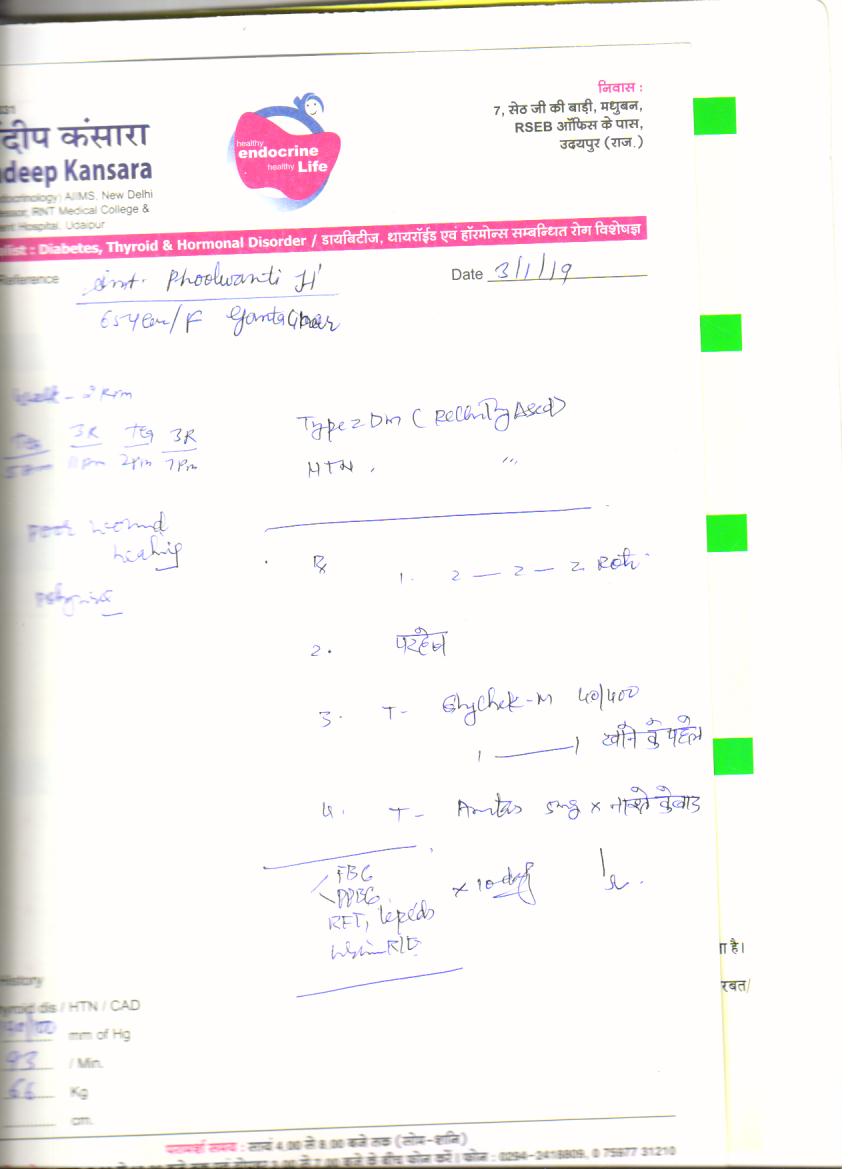 निवास :
7, सेठ जी की बाड़ी, मधुबन,
RSEB ऑफिस के पास,
उदयपुर (राज.)
दीप कंसारा
deep Kansara
healthy
endocrine
healthy Life
docrinology) AIIMS, New Delhi
essor, RNT Medical College &
ent Hospital, Udaipur
list : Diabetes, Thyroid & Hormonal Disorder / डायबिटीज, थायरॉईड एवं हॉरमोन्स सम्बन्धित रोग विशेषज्ञ
Reference Smt. Phoolwanti
Date 3/1/19
65 year/F
3R 3R
2pm 7pm
Type 2 DM (Recently
HTN, "
poor wound
healing
Rx
1. 2 — 2 — 2 Roti
2. परहेज
3. T- Glychek-M 40/400
1 ——— 1 खाने के पहले
4. T- Amtas 5mg x नाश्ते के बाद
FBG
PPBG x 10 days
RFT, Lipids
History
yroid dis / HTN / CAD
mm of Hg
93 / Min.
66 Kg
cm.
ा है।
रबत/
परामर्श समय : सायं 4.00 से 8.00 बजे तक (सोम-शनि)
बजे के बीच फोन करें। फोन : 0294-2418809, 0 75977 31210